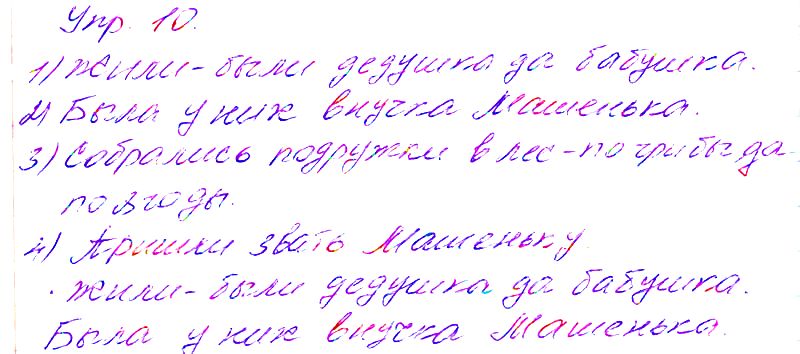 Упр. 10.
1) Жили-были дедушка да бабушка.
2) Была у них внучка Машенька.
3) Собрались подружки в лес - по грибы да
по ягоды.
4) Пришли звать Машеньку
Жили-были дедушка да бабушка.
Была у них внучка Машенька.